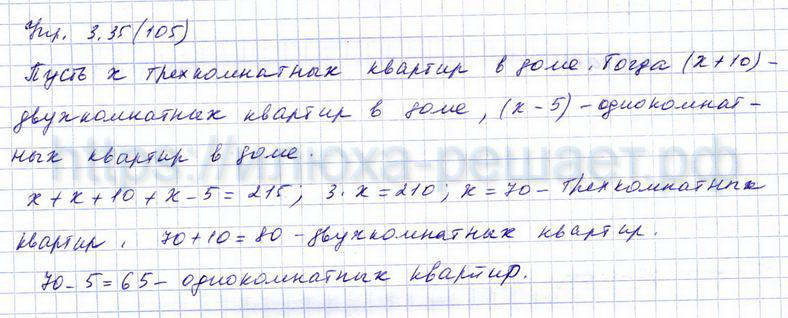 Упр. 3.35(105)
Пусть х трехкомнатных квартир в доме. Тогда (х+10) -
двухкомнатных квартир в доме, (х-5) - однокомнат-
ных квартир в доме.
https://илюха-решает.рф
х + х + 10 + х - 5 = 215; 3·х = 210; х = 70 - трехкомнатных
квартир. 70 + 10 = 80 - двухкомнатных квартир.
70 - 5 = 65 - однокомнатных квартир.